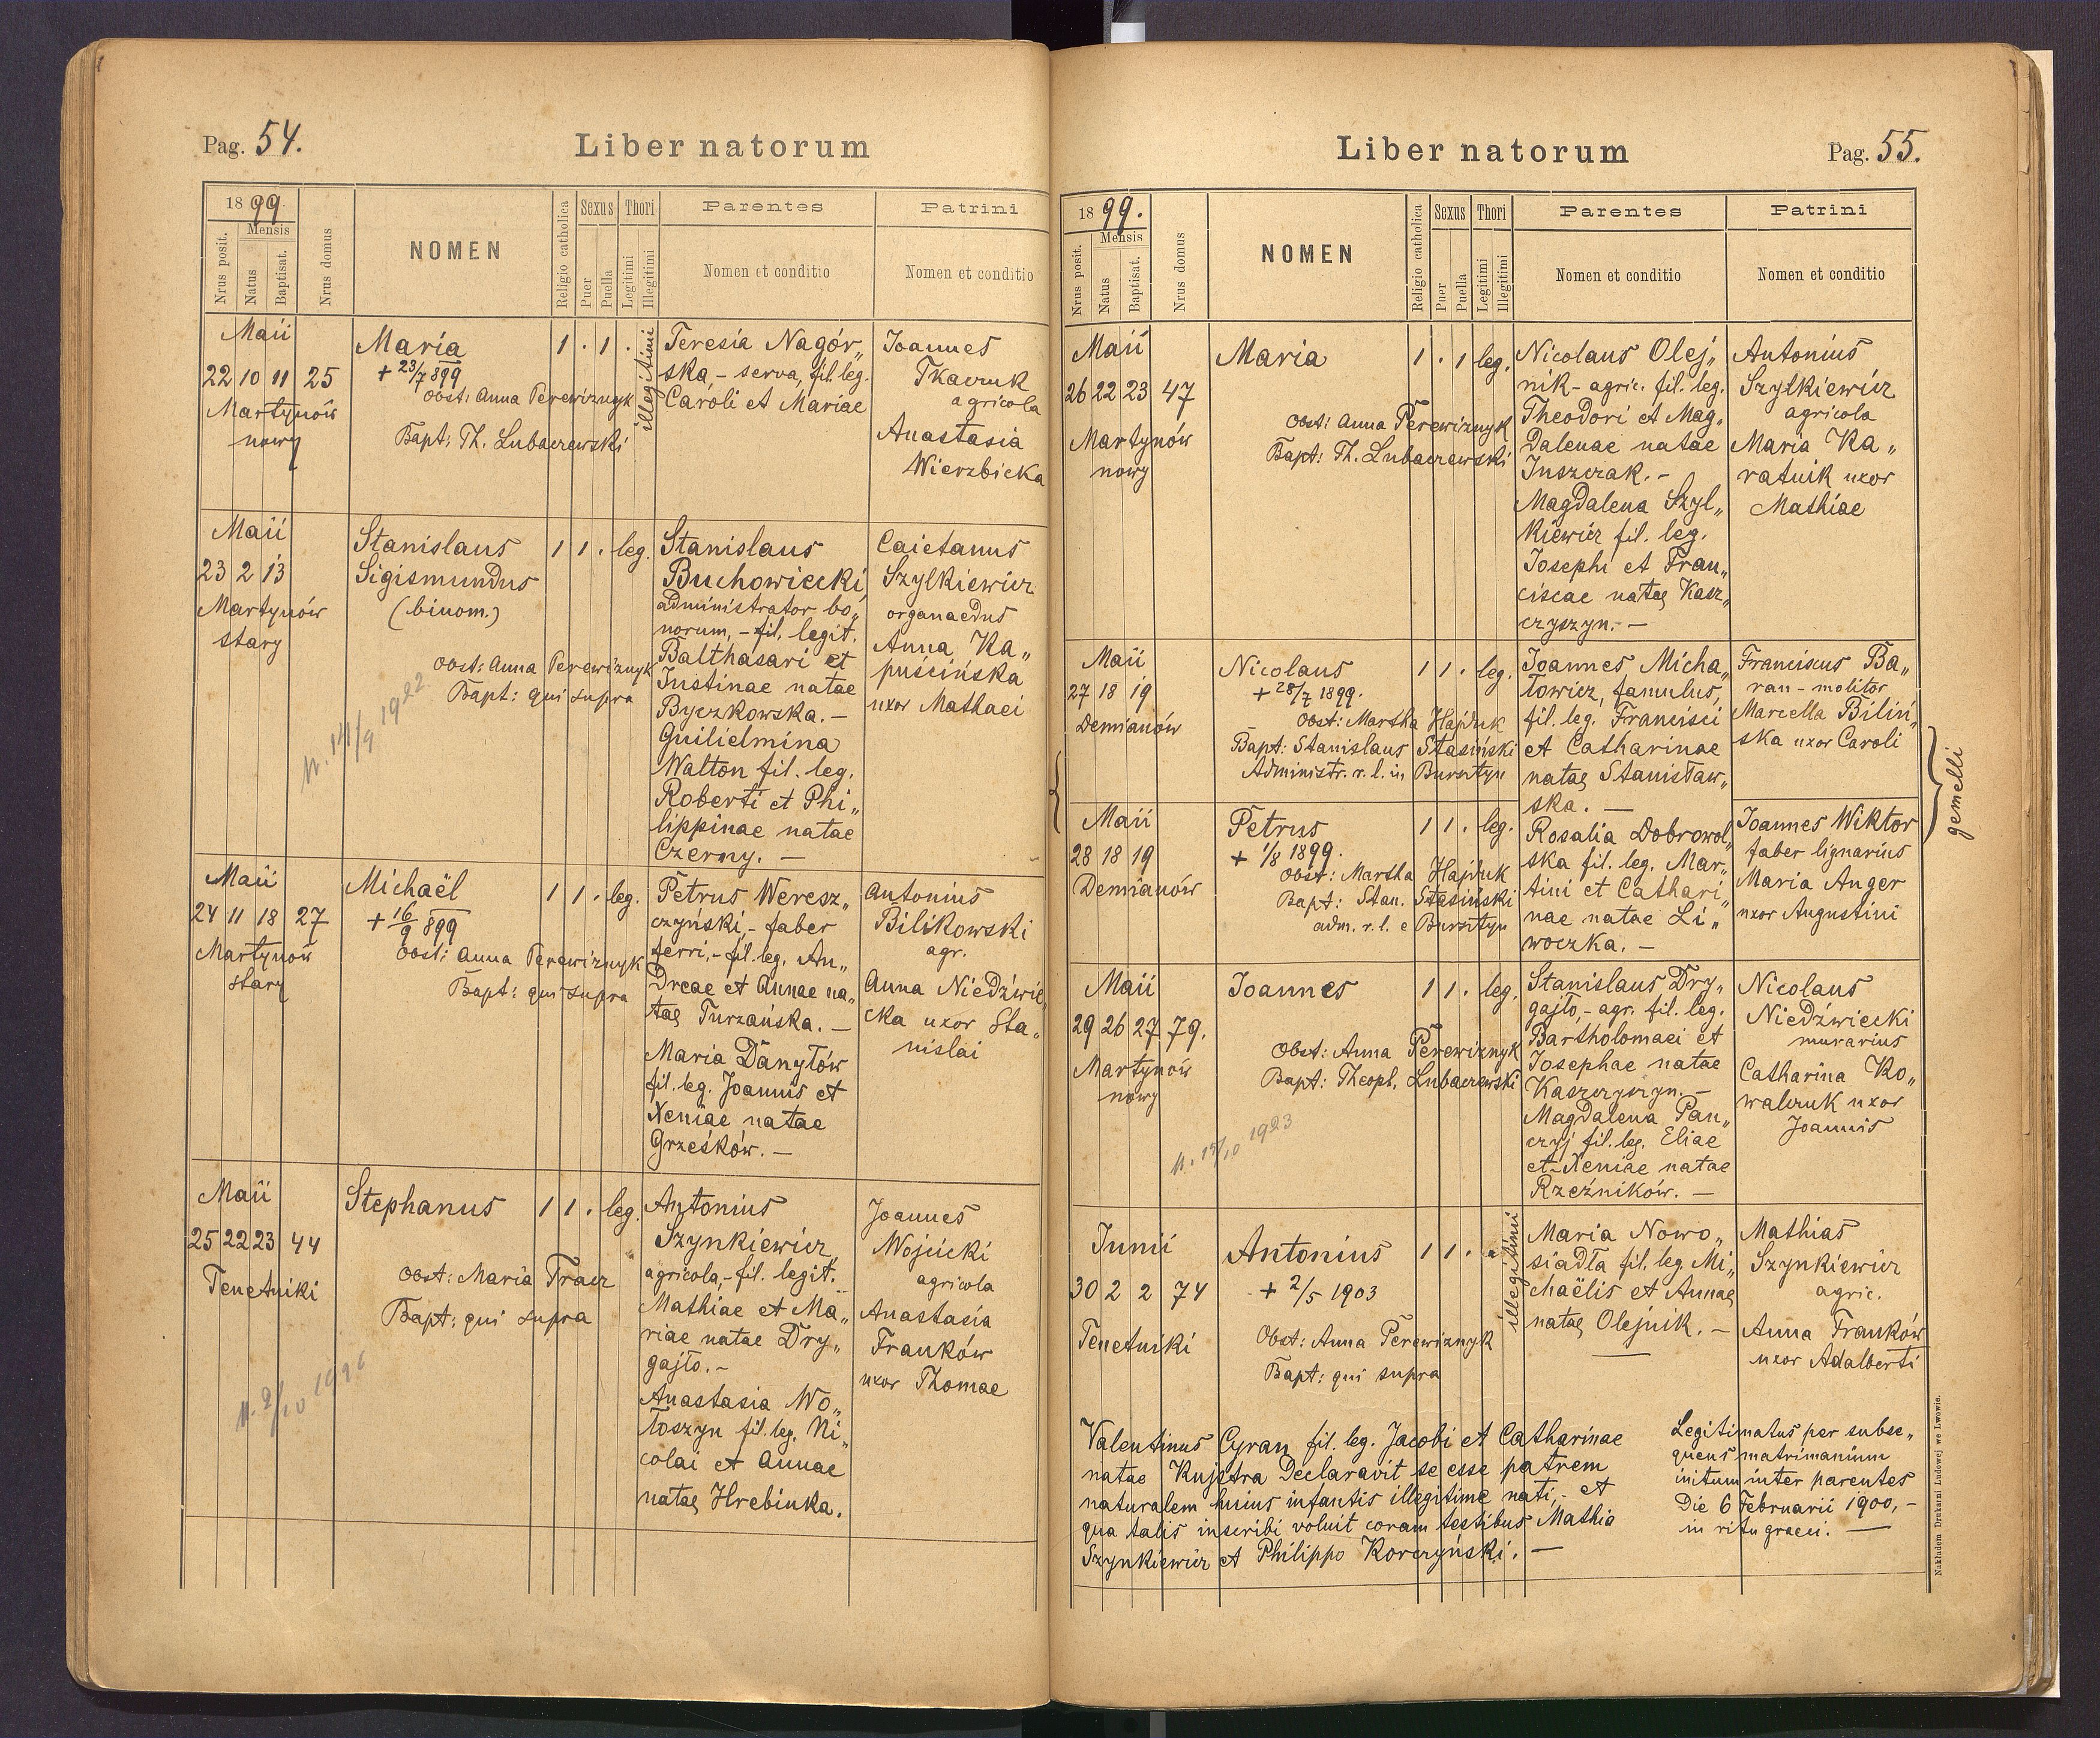 Pag. 54.
Liber natorum
1899.
Mensis
Nrus posit.
Natus
Baptisat.
Nrus domus
NOMEN
Religio catholica
Sexus
Puer
Puella
Thori
Legitimi
Illegitimi
Parentes
Nomen et conditio
Patrini
Nomen et conditio
Maii
22 10 11 25
Martynów
nowy
Maria
+ 23/7 899
Obst: Anna Perewiznyk
Bapt: Th. Lubaczewski
1 . 1 .
illegitimi
Teresia Nagór„
ska, - serva, fil. leg.
Caroli et Mariae
Joannes
Tkaczuk
agricola
Anastasia
Wierzbicka
Maii
23 2 13
Martynów
stary
Stanislaus
Sigismundus
(binom.)
Obst: Anna Perewiznyk
Bapt: qui supra
1 1 . leg.
Stanislaus
Buchowiecki,
administrator bo„
norum, - fil. legit.
Balthasari et
Justinae natae
Byczkowska. —
Guilielmina
Walton fil. leg.
Roberti et Phi„
lippinae natae
Czerny. —
Caietanus
Szylkiewicz
organaedus
Anna Ka„
puścińska
uxor Mathaei
Maii
24 11 18 27
Martynów
stary
Michaël
+ 16/9 899
Obst: Anna Perewiznyk
Bapt: qui supra
1 1 . leg.
Petrus Weresz„
czyński, - faber
ferri, - fil. leg. An„
dreae et Annae na„
tae Turzańska. —
Maria Danyłów
fil. leg. Joannis et
Xeniae natae
Grześków. —
Antonius
Bilikowski
agr.
Anna Niedźwie„
cka uxor Sta„
nislai
Maii
25 22 23 44
Tenetniki
Stephanus
Obst: Maria Tracz
Bapt: qui supra
1 1 . leg.
Antonius
Szynkiewicz
agricola, - fil. legit.
Mathiae et Ma„
riae natae Dry„
gajło. —
Anastasia Wo„
łoszyn fil. leg. Ni„
colai et Annae
natae Hrebinka.
Joannes
Wojcicki
agricola
Anastasia
Franków
uxor Thomae
Liber natorum
Pag. 55.
1899.
Mensis
Nrus posit.
Natus
Baptisat.
Nrus domus
NOMEN
Religio catholica
Sexus
Puer
Puella
Thori
Legitimi
Illegitimi
Parentes
Nomen et conditio
Patrini
Nomen et conditio
Maii
26 22 23 47
Martynów
nowy
Maria
Obst: Anna Perewiznyk
Bapt: Th. Lubaczewski
1 . 1 leg.
Nicolaus Olej„
nik - agric. fil. leg.
Theodori et Mag„
dalenae natae
Juszczak. -
Magdalena Szyl„
kiewicz fil. leg.
Josephi et Fran„
ciscae natae Kasz„
czyszyn. —
Antonius
Szylkiewicz
agricola
Maria Ka„
ratnik uxor
Mathiae
Maii
27 18 19
Demianów
Nicolaus
+ 28/7 1899.
Obst: Martha Hajduk
Bapt: Stanislaus Stasiński
Administr. r. l. in Bursztyn
1 1 . leg.
Joannes Micha„
łowicz, famulus,
fil. leg. Francisci
et Catharinae
natae Stanisław„
ska. —
Franciscus Ba„
ran - molitor
Marcella Biliń„
ska uxor Caroli
gemelli
Maii
28 18 19
Demianów
Petrus
+ 1/8 1899.
Obst: Martha Hajduk
Bapt: Stan. Stasiński
adm. r. l. e Bursztyn
1 1 . leg.
Rosalia Dobrowol„
ska fil. leg. Mar„
tini et Cathari„
nae natae Li„
woczka. —
Joannes Wiktor
faber lignarius
Maria Anger
uxor Augustini
Maii
29 26 27 79.
Martynów
nowy
Joannes
Obst: Anna Perewiznyk
Bapt: Theoph. Lubaczewski
1 1 . leg.
Stanislaus Dry„
gajło, - agr. fil. leg.
Bartholomaei et
Josephae natae
Kaszczyszyn. —
Magdalena Pan„
czyj fil. leg. Eliae
et Xeniae natae
Rzeźników. —
Nicolaus
Niedźwiecki
murarius
Catharina Ko„
walczuk uxor
Joannis
Junii
30 2 2 74
Tenetniki
Antonius
+ 2/5 1903
Obst: Anna Perewiznyk
Bapt: qui supra
1 1 .
illegitimi
Maria Nowo„
siadła fil. leg. Mi„
chaëlis et Annae
natae Olejnik. —
Mathias
Szynkiewicz
agric.
Anna Franków
uxor Adalberti
Valentinus Cyran fil. leg. Jacobi et Catharinae
natae Kujstra declaravit se esse patrem
naturalem huius infantis illegitime nati, - et
qua talis inscribi voluit coram testibus Mathia
Szynkiewicz et Philippo Korczyński. —
Legitimatus per subse„
quens matrimonium
initum inter parentes
die 6 Februarii 1900, -
in ritu graeci. —
Nakładem Drukarni Ludowej we Lwowie.